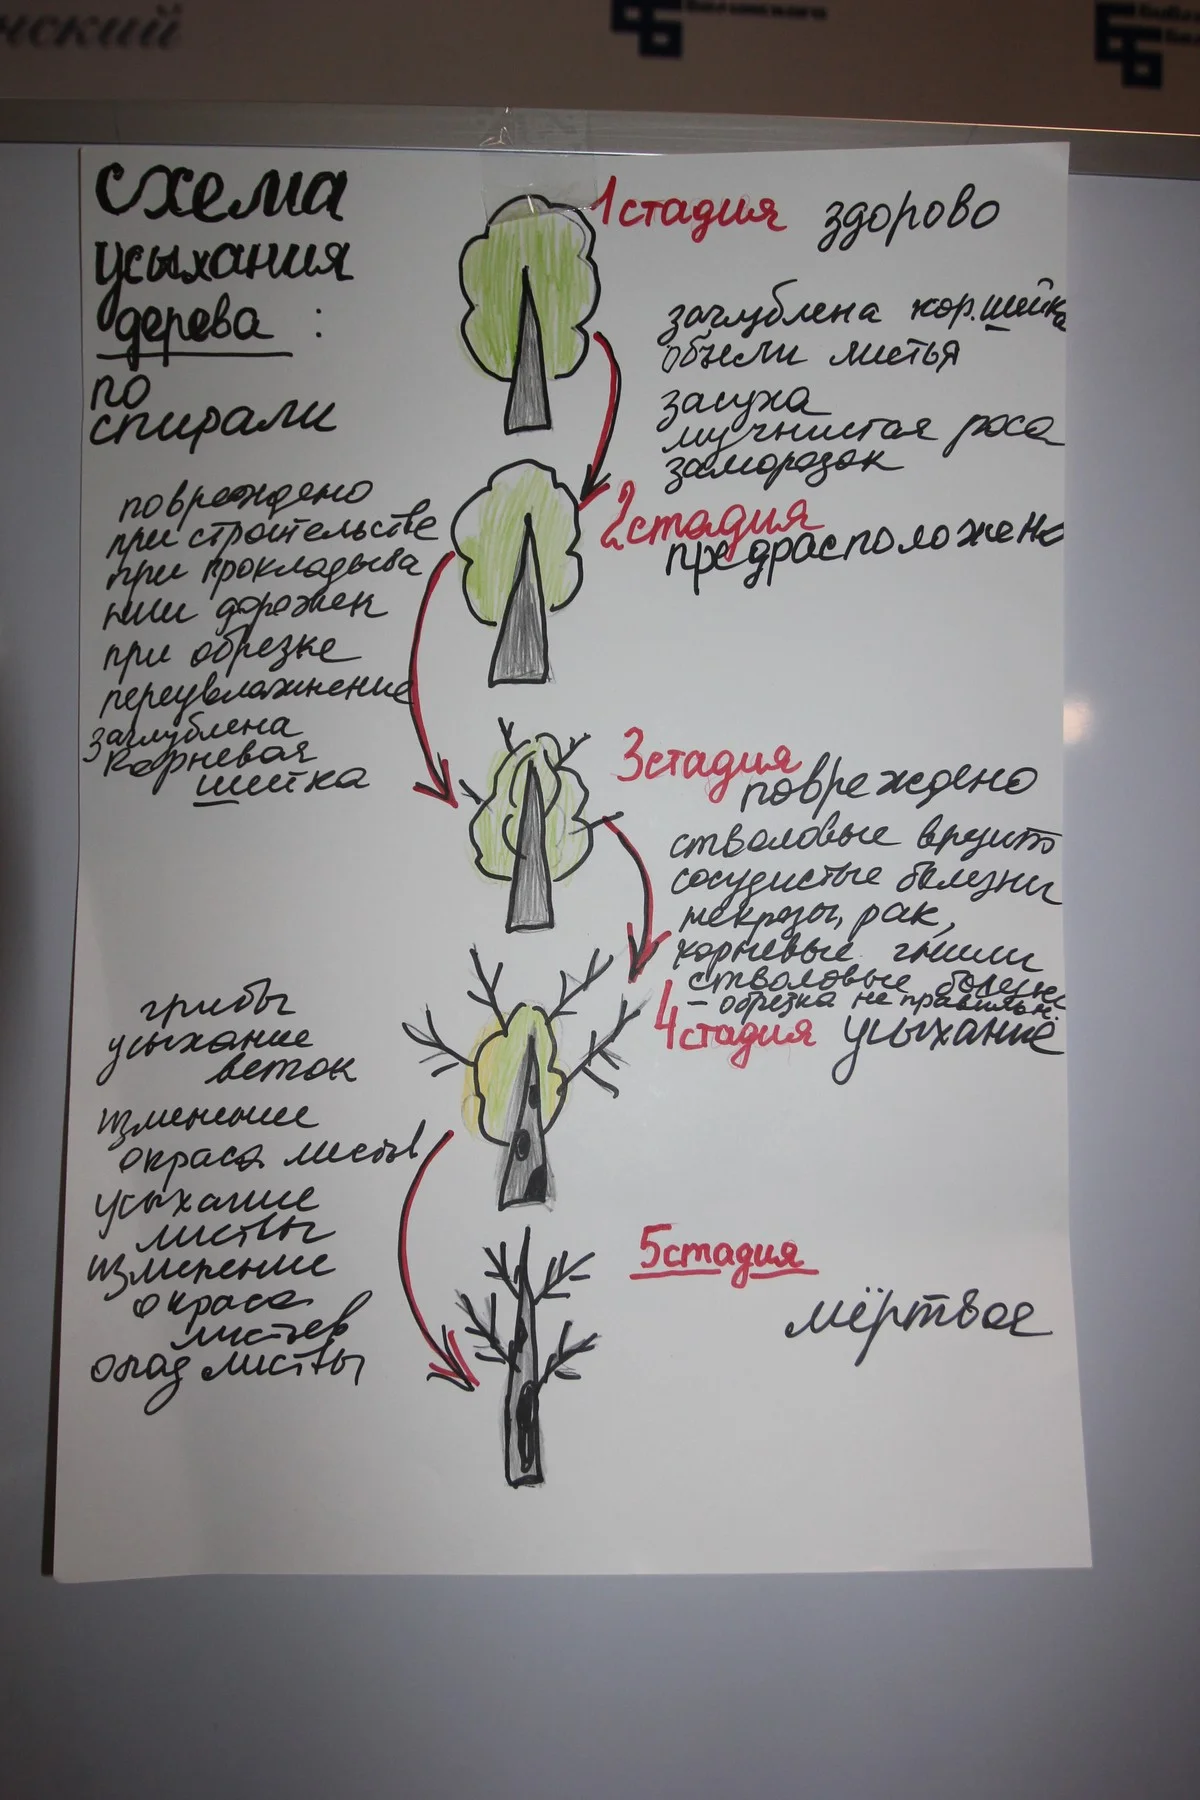 нский
схема
усыхания
дерева :
по
спирали
1 стадия здорово
заглублена кор. шейка
объели листья
засуха
мучнистая роса
заморозок
2 стадия
предрасположено
повреждено
при строительстве
при прокладыва
нии дорожек
при обрезке
переувлажнение
заглублена
корневая
шейка
3 стадия
повреждено
стволовые вредит
сосудистые болезни
некрозы, рак,
корневые гнили
стволовые болезни
- обрезка не правильн.
4 стадия усыхание
грибы
усыхание
веток
изменение
окраса листьев
усыхание
листвы
изменение
окраса
листьев
опад листвы
5 стадия
мёртвое